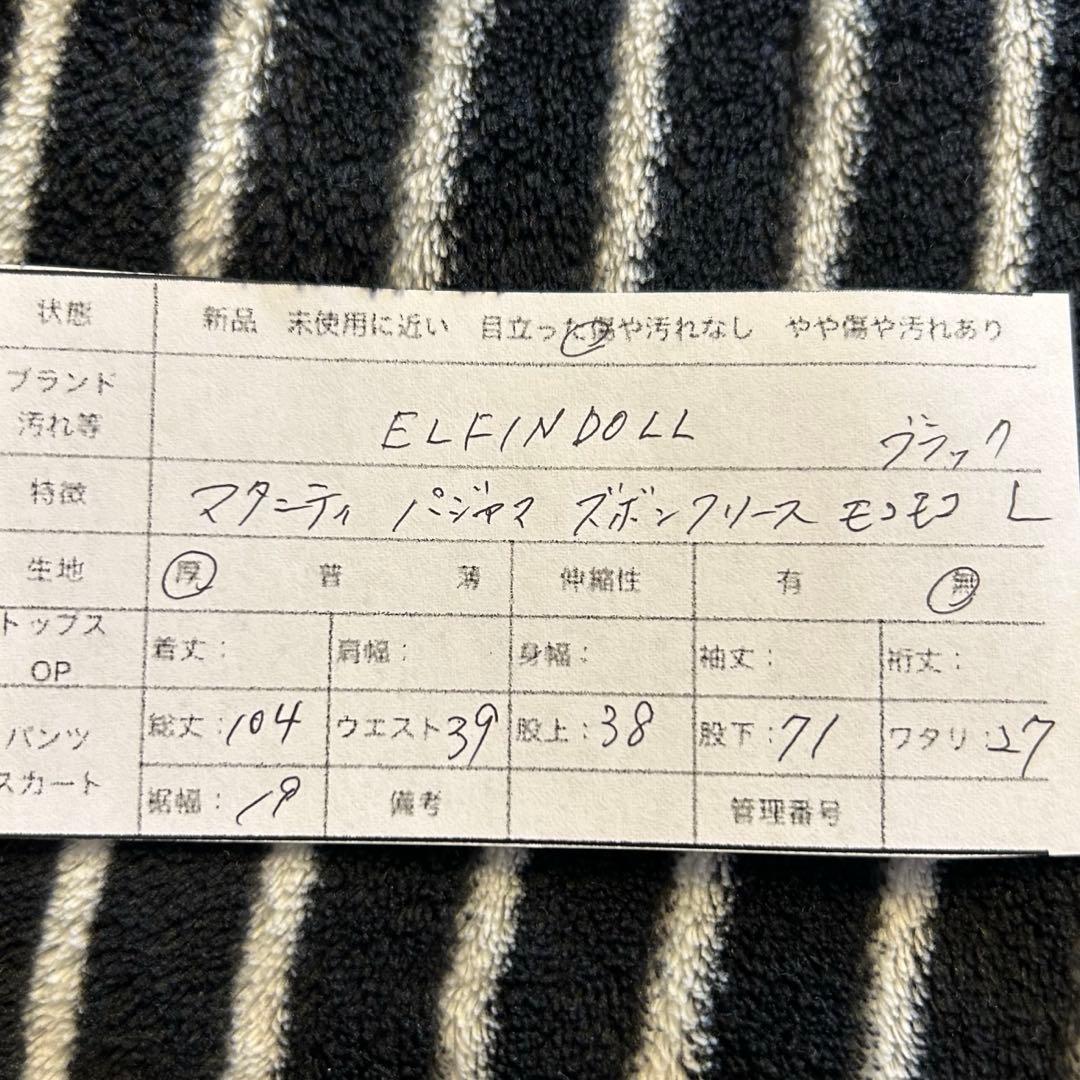 状態 新品 未使用に近い 目立った傷や汚れなし やや傷や汚れあり
ブランド
汚れ等 ELFINDOLL ブラック
特徴 マタニティ パジャマ ズボン フリース モコモコ L
生地 厚 普 薄 伸縮性 有 無
トップス
OP 着丈: 肩幅: 身幅: 袖丈: 裄丈:
パンツ
スカート 総丈:104 ウエスト39 股上:38 股下:71 ワタリ:27
裾幅:19 備考 管理番号